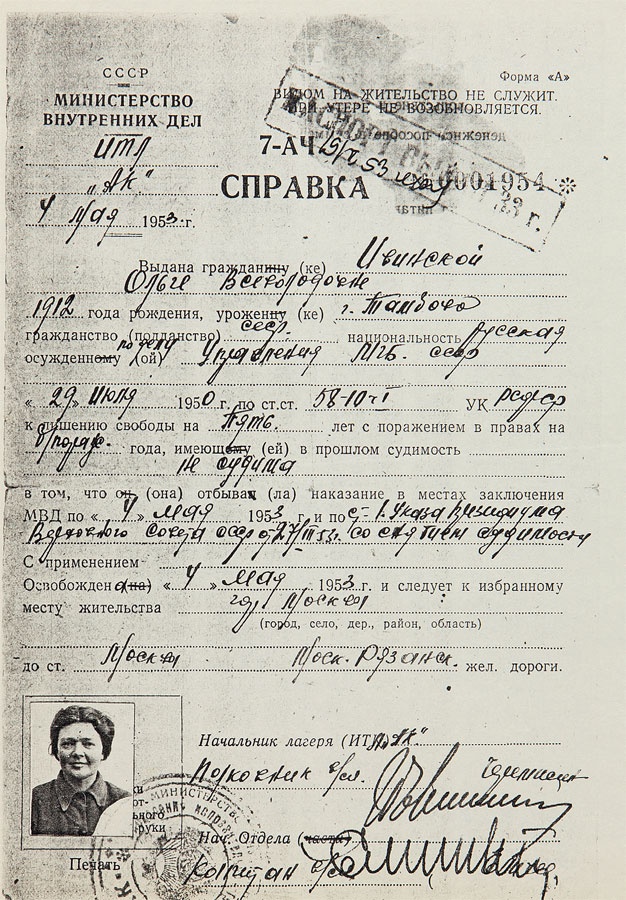 СССР
МИНИСТЕРСТВО
ВНУТРЕННИХ ДЕЛ
ИТЛ
„АК“
4 мая 1953 г.
Форма «А»
ВИДОМ НА ЖИТЕЛЬСТВО НЕ СЛУЖИТ.
ПРИ УТЕРЕ НЕ ВОЗОБНОВЛЯЕТСЯ.
7-АЧ
0001954 *
СПРАВКА
Выдана гражданину (ке) Ивинской
Ольге Всеволодовне
1912 года рождения, уроженцу (ке) г. Тамбова
гражданство (подданство) ссср. национальность русская
осужденному (ой) по делу Управления МГБ. ссср
« 29 » июля 1950 г. по ст.ст. 58-10 УК РСФСР
к лишению свободы на Пять лет с поражением в правах на
б/пораж. года, имеющему (ей) в прошлом судимость
не судима
в том, что он (она) отбывал (ла) наказание в местах заключения
МВД по « 4 » мая 1953 г. и по с- 1 Указа Президиума
Верховного Совета ссср от 27/III 53г. со снятием судимости
С применением
Освобожден а(на) « 4 » мая 1953 г. и следует к избранному
месту жительства гор. Москва
(город, село, дер., район, область)
до ст. Москва Моск. Рязанск. жел. дороги.
Начальник лагеря (ИТЛ) „АК“
Полковник
Нач. Отдела (части)
Капитан
Печать